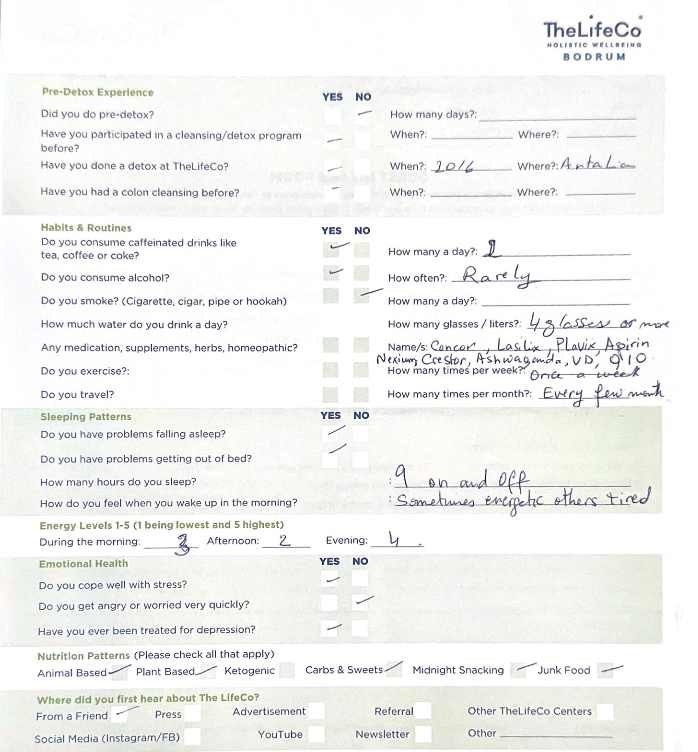 TheLifeCo
HOLISTIC WELLBEING
BODRUM
Pre-Detox Experience YES NO
Did you do pre-detox? How many days?:
Have you participated in a cleansing/detox program
before? When?: Where?:
Have you done a detox at TheLifeCo? When?: 2016 Where?: Antalia
Have you had a colon cleansing before? When?: Where?:
Habits & Routines YES NO
Do you consume caffeinated drinks like
tea, coffee or coke? How many a day?:
Do you consume alcohol? How often?: Rarely
Do you smoke? (Cigarette, cigar, pipe or hookah) How many a day?:
How much water do you drink a day? How many glasses / liters?: 4 glasses or more
Any medication, supplements, herbs, homeopathic? Name/s: Concor, Lasilix, Plavix, Aspirin
Nexium, Crestor, Ashwaganda, VD, Q10
Do you exercise?: How many times per week?: Once a week
Do you travel? How many times per month?: Every few month
Sleeping Patterns YES NO
Do you have problems falling asleep?
Do you have problems getting out of bed?
How many hours do you sleep? : 9 on and off
How do you feel when you wake up in the morning? : Sometimes energetic others tired
Energy Levels 1-5 (1 being lowest and 5 highest)
During the morning: 3 Afternoon: 2 Evening: 4
Emotional Health YES NO
Do you cope well with stress?
Do you get angry or worried very quickly?
Have you ever been treated for depression?
Nutrition Patterns (Please check all that apply)
Animal Based Plant Based Ketogenic Carbs & Sweets Midnight Snacking Junk Food
Where did you first hear about The LifeCo?
From a Friend Press Advertisement Referral Other TheLifeCo Centers
Social Media (Instagram/FB) YouTube Newsletter Other